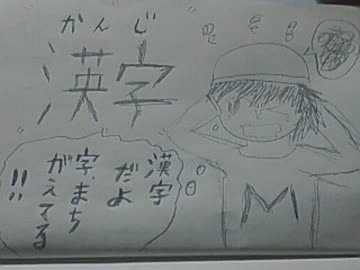 かんじ
氵英字
漢字
だよ
字、まち
がえてる
!!
M